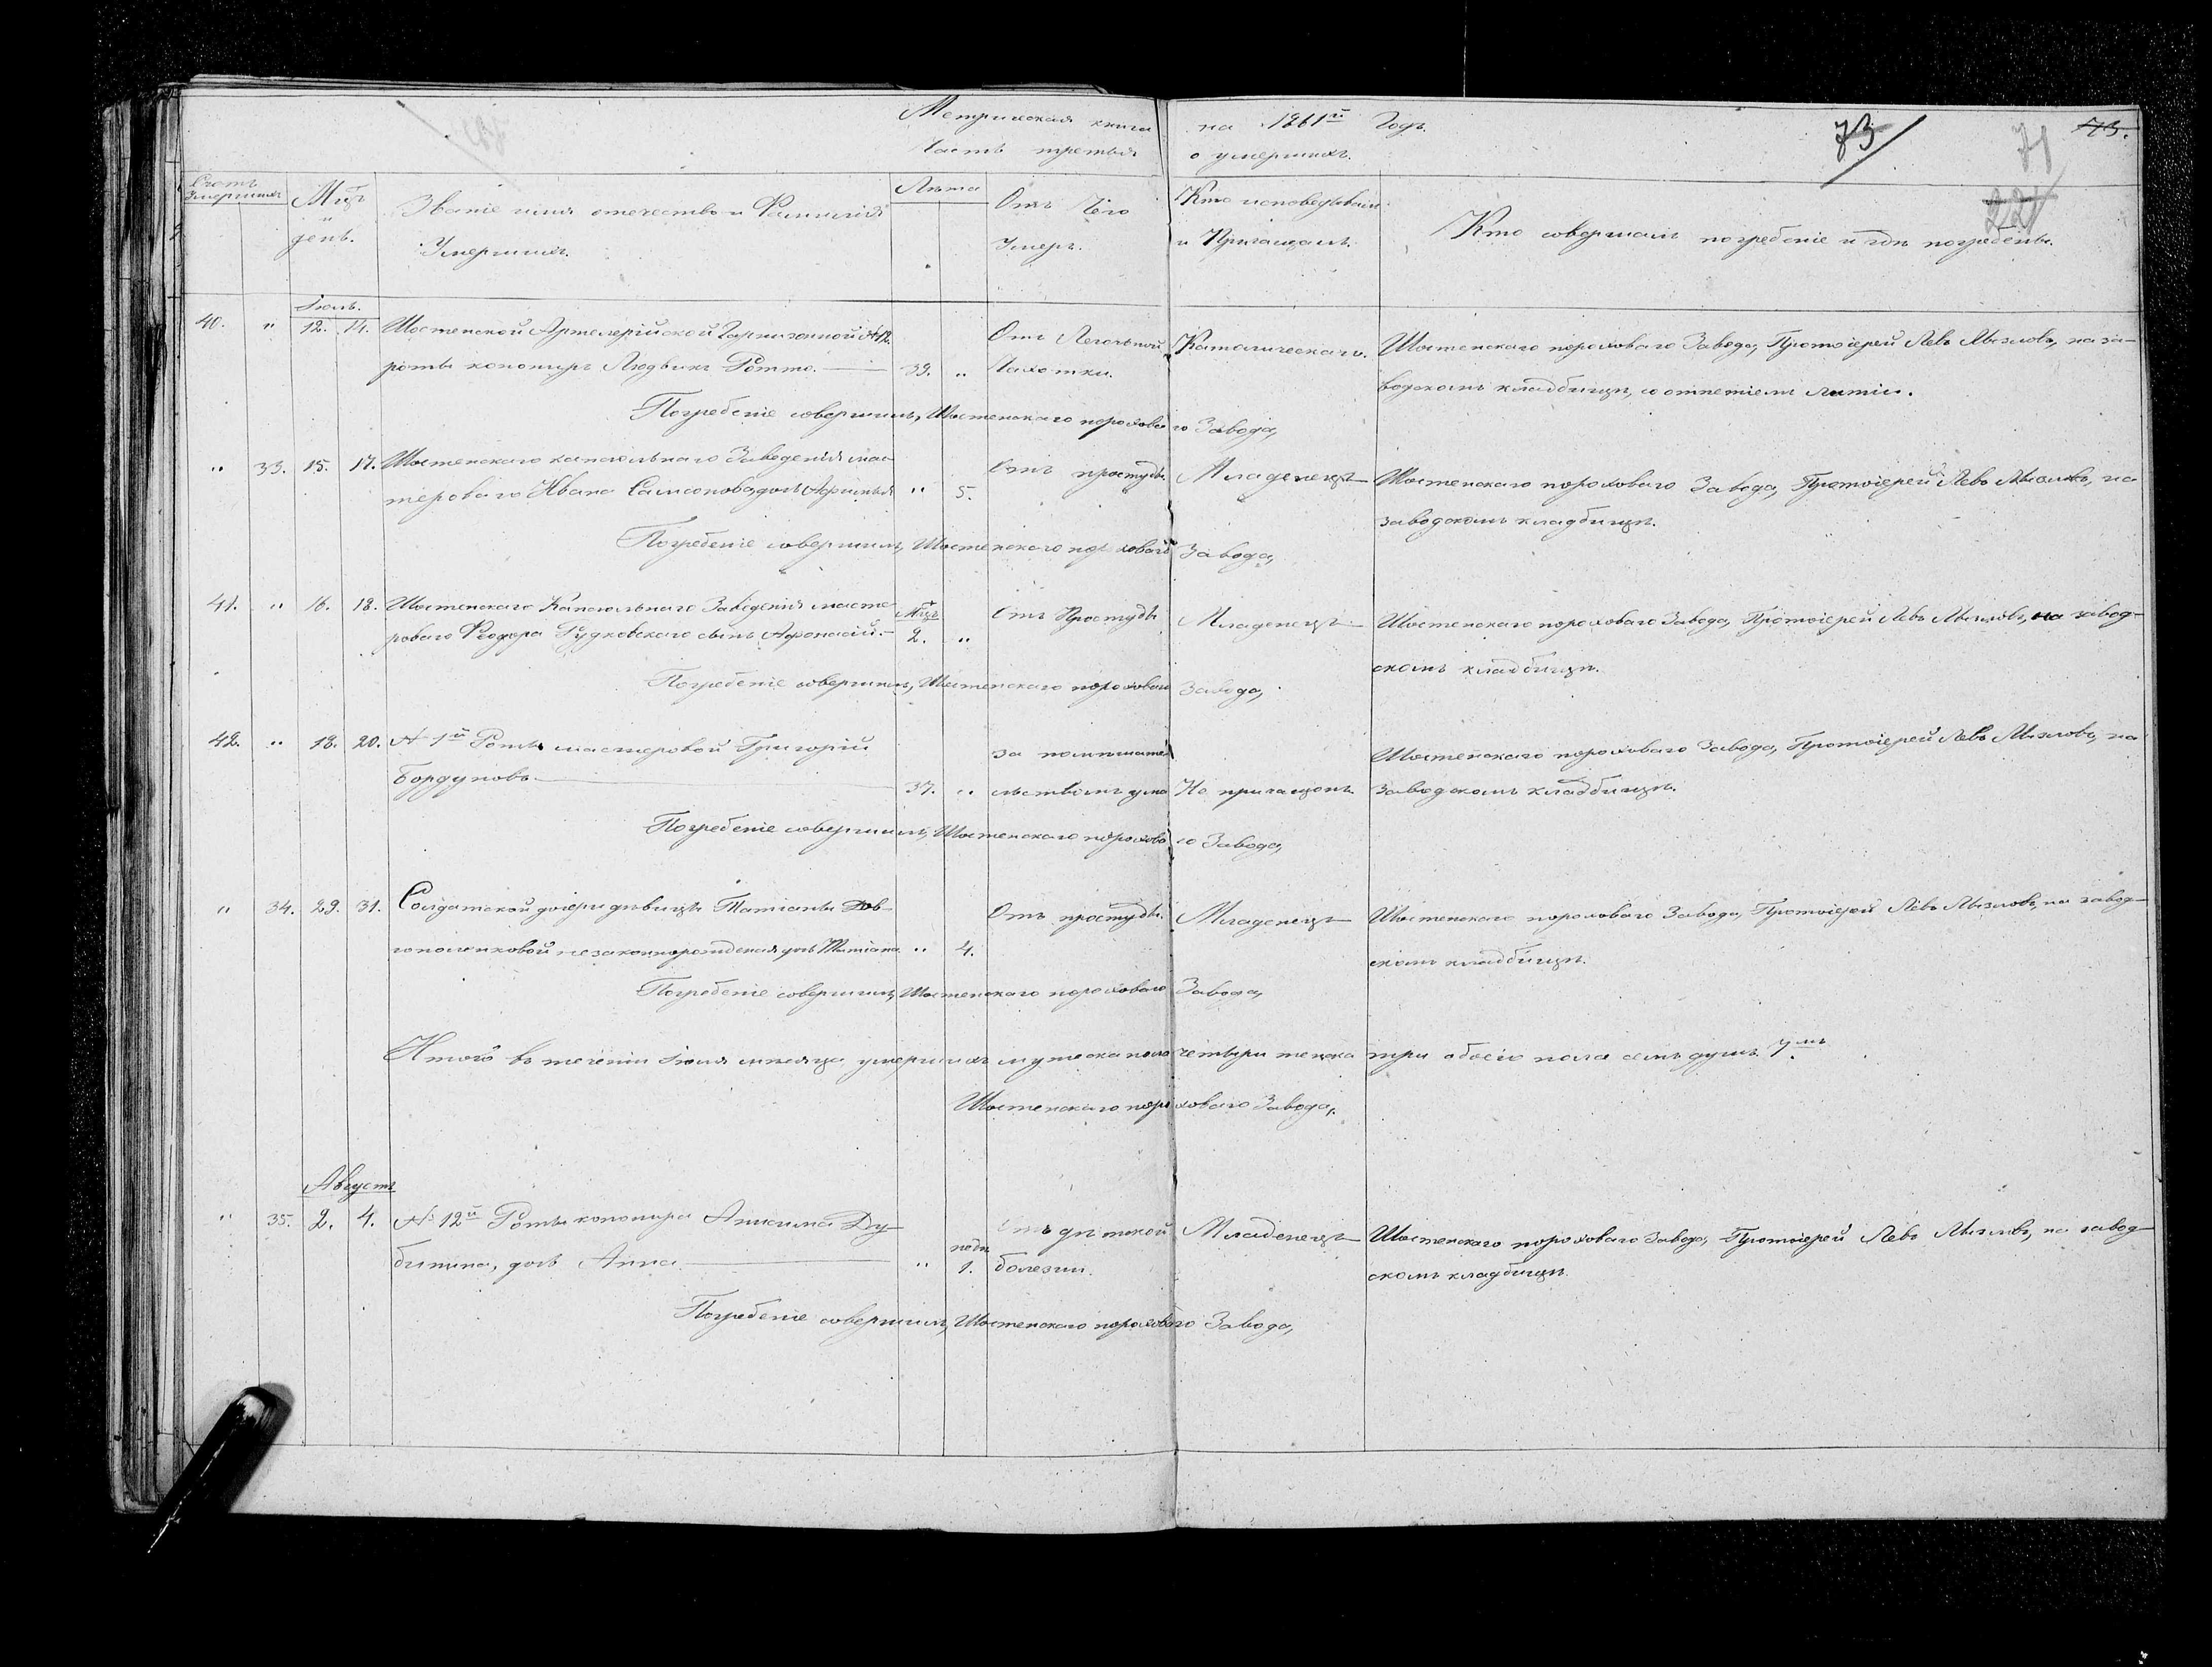 Метрическая книга на 1861й Годъ.
Часть третья о умершихъ.
73
71
73.
221
Счетъ Умершихъ
Мцъ и день.
Званіе имя отечество и Фамилія Умершихъ.
Лѣта
Отъ Чего Умеръ.
Кто исповедывалъ и Причащалъ.
Кто совершалъ погребеніе и гдѣ погребены.
Іюль.
40. " 12. 14. Шостенской Артелерійской Гарнизонной №12. Отъ Легочьной Католическаго. Шостенскаго пороховаго Завода, Протоіерей Левъ Мызловъ, на за-
роты конониръ Людвикъ Ротто. 39. " Чахотки. водскомъ кладбищѣ, со отпетіемъ литіи.
Погребеніе совершилъ, Шостенскаго пороховаго Завода,
" 33. 15. 17. Шостенскаго капсюльнаго Заведенія мас- Отъ простуды. Младенецъ Шостенскаго пороховаго Завода, Протоіерей Левъ Мызловъ, на
тероваго Ивана Самсонова, дочь " 5. заводскомъ кладбищѣ.
Погребеніе совершилъ, Шостенскаго пороховаго Завода,
41. " 16. 18. Шостенскаго Капсюльнаго Заведенія масте- Мцъ Отъ Простуды Младенецъ Шостенскаго пороховаго Завода, Протоіерей Левъ Мызловъ, на завод-
роваго Феодора Рудковскаго сынъ Афонасій. 2. " скомъ кладбищѣ.
Погребеніе совершилъ, Шостенскаго пороховаго Завода,
42. " 18. 20. № 1й Роты мастеровой Григорій за помѣшател Шостенскаго пороховаго Завода, Протоіерей Левъ Мызловъ, на
Бордуновъ 37. " льствомъ ума Не причащонъ. Заводскомъ кладбищѣ.
Погребеніе совершилъ, Шостенскаго пороховаго Завода,
" 34. 29. 31. Солдатской дочери дѣвицы Татіаны Дов- Отъ простуды. Младенецъ Шостенскаго пороховаго Завода, Протоіерей Левъ Мызловъ, на завод-
гополенковой незаконнорожденая дочь Татіана " 4. скомъ кладбищѣ.
Погребеніе совершилъ, Шостенскаго пороховаго Завода,
Итого въ теченіи Іюля мѣсяца умершихъ мужеска пола четыри женска три обоего пола семь душъ 7мъ.
Шостенскаго пороховаго Завода,
Августъ
" 35. 2. 4. № 12й Роты кононира Анисима Ду- недѣ Отъ дѣтской Младенецъ Шостенскаго пороховаго Завода, Протоіерей Левъ Мызловъ, на завод-
бинина, дочь Анна " 1. болезни. скомъ кладбищѣ.
Погребеніе совершилъ, Шостенскаго пороховаго Завода,